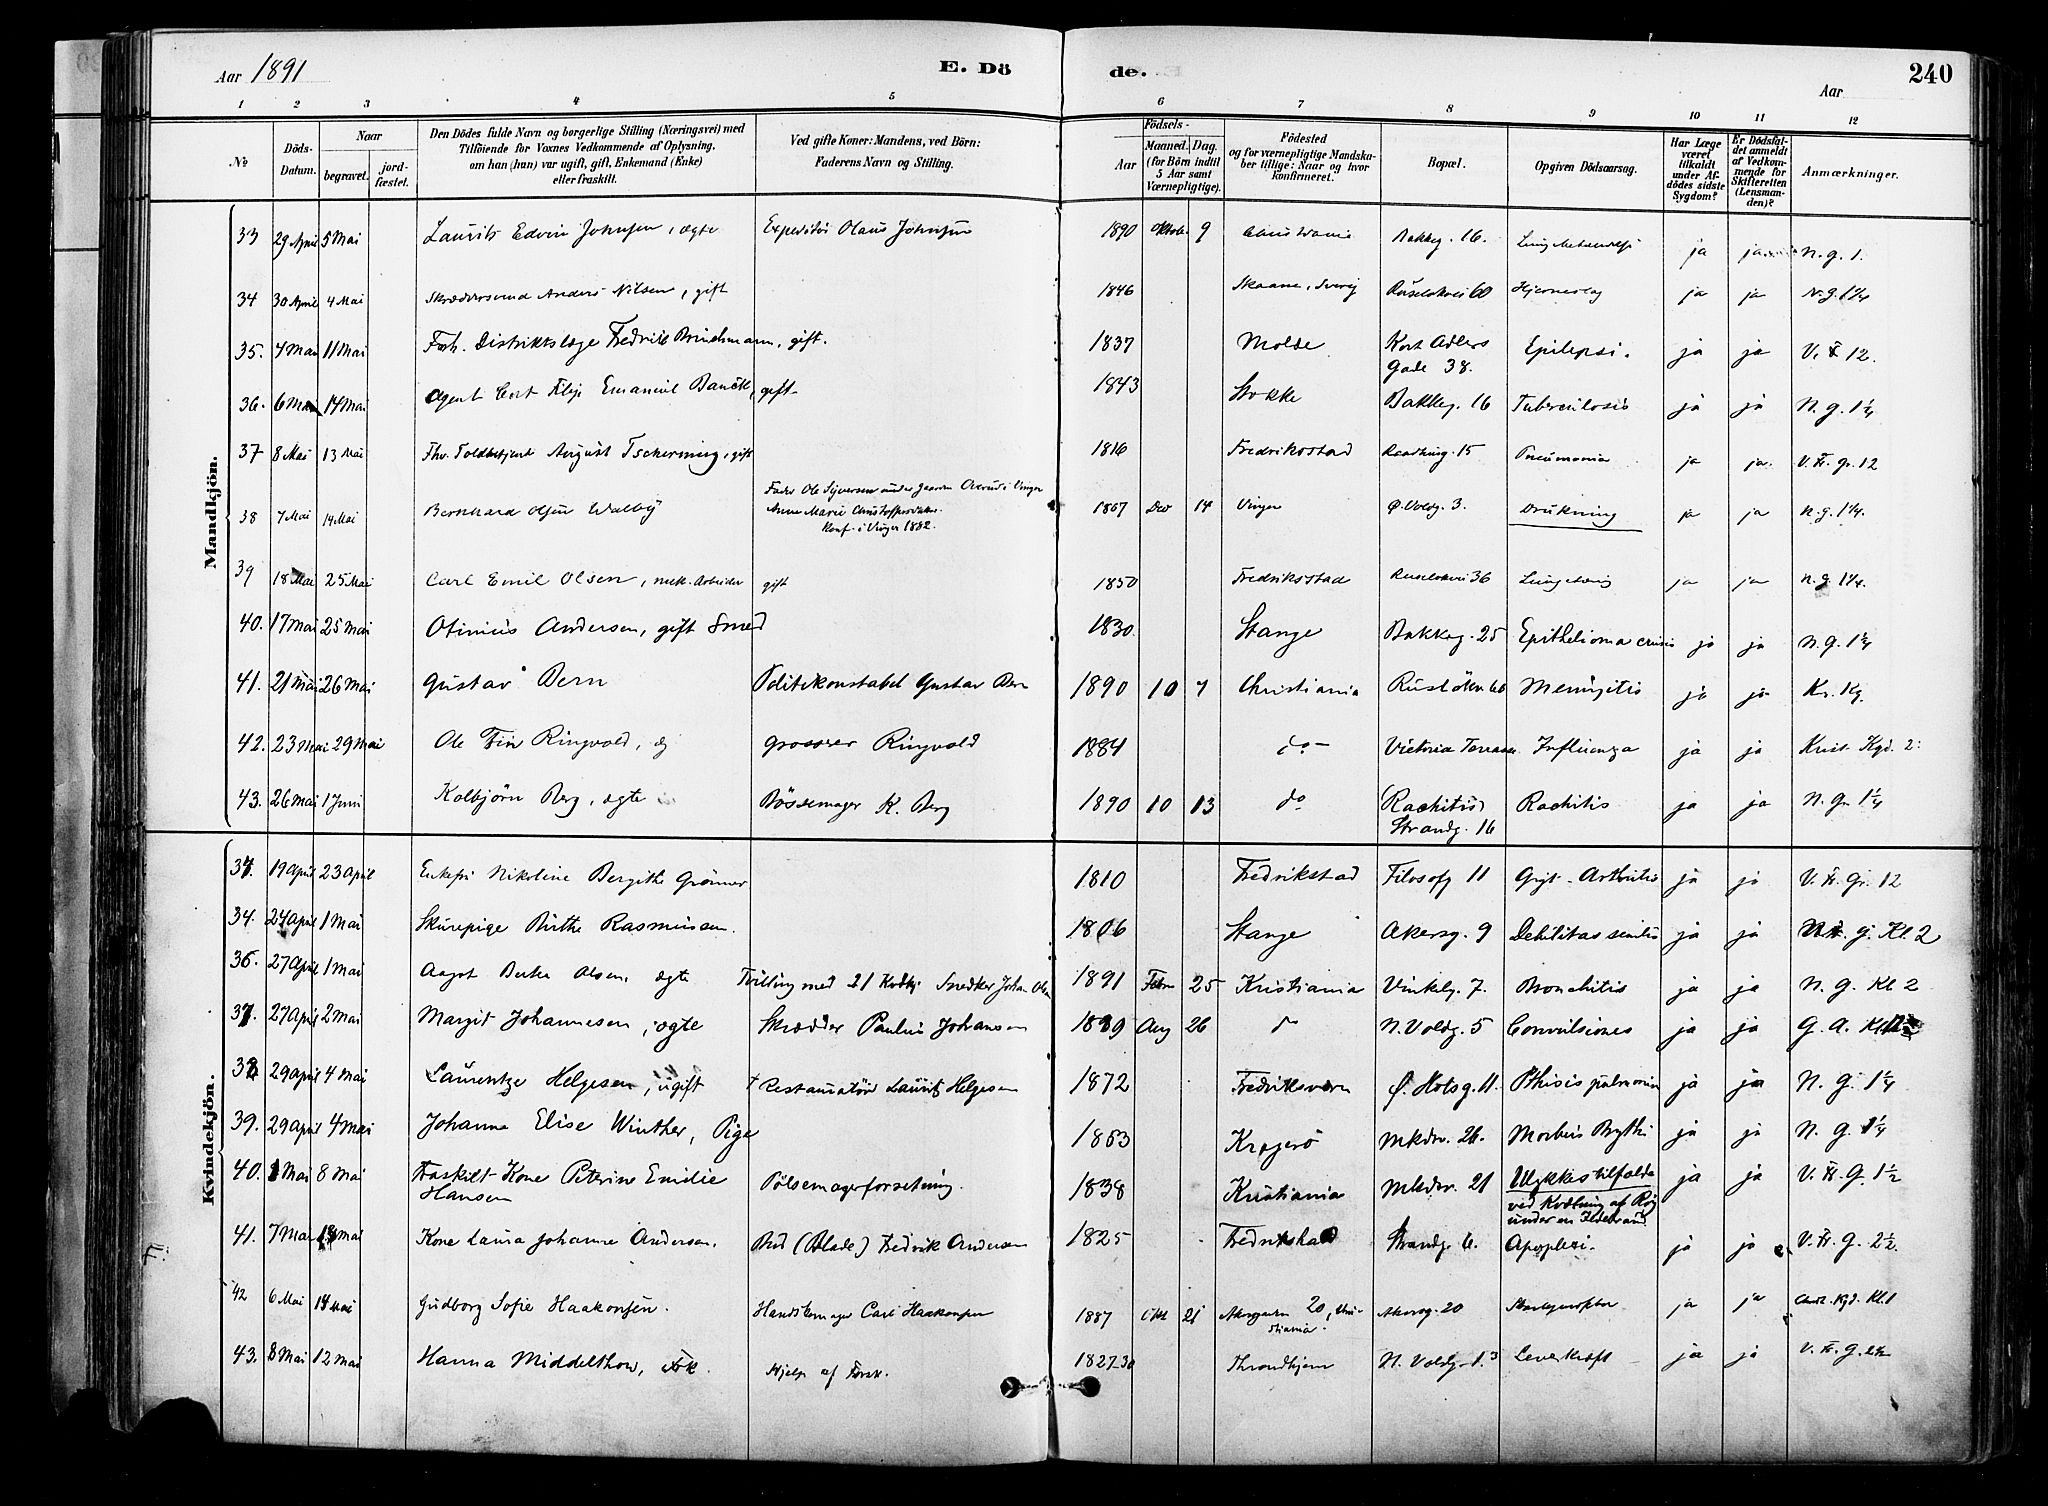 Aar 1891
E. Dö
de.
240
Aar
1 2 3 4 5 6 7 8 9 10 11 12
No
Döds-Datum.
Naar
begravet.
jord-fæstet.
Den Dödes fulde Navn og borgerlige Stilling (Næringsvei) med
Tilföiende for Voxnes Vedkommende af Oplysning,
om han (hun) var ugift, gift, Enkemand (Enke)
eller fraskilt.
Ved gifte Koner: Mandens, ved Börn:
Faderens Navn og Stilling.
Födsels-
Aar
Maaned. Dag.
(for Börn indtil
5 Aar samt
Værnepligtige).
Födested
og for værnepligtige Mandska-
ber tillige: Naar og hvor
konfirmeret.
Bopæl.
Opgiven Dödsaarsag.
Har Læge
været
tilkaldt
under Af-
dödes sidste
Sygdom?
Er Dödsfal-
det anmeldt
af Vedkom-
mende for
Skifteretten
(Lensman-
den)?
Anmærkninger.
Mandkjön.
33 29 April 5 Mai Laurits Edvin Johnsen, ægte Expeditör Olaus Johnsen 1890 Oktob. 9 Bakkeg. 16. ja ja N. g. 1.
34 30 April 4 Mai Anders Nilsen, gift 1846 Skaane, Sverig 60 Hjerneslag ja ja N. g. 1 1/4
35. 4 Mai 11 Mai Fhv. Distriktslæge Fredrik Brinchmann, gift. 1837 Molde Kort Adlers Gade 38. Epilepsi. ja ja V. F. 12.
36. 6 Mai 14 Mai Agent Cort Filip Emanuel gift 1843 Stokke Bakkeg. 16 Tuberculosis ja ja N. g. 1 1/4
37 8 Mai 13 Mai Fhv. Toldbetjent August Tscherning, gift 1816 Fredriksstad 15 Pneumonia ja ja. V. Fr. gr. 12
38 7 Mai 14 Mai Bernhard Olsen Walby Fader Ole Syversen under Gaarden i Vinger
Anne Marie Christoffersdatter.
Konf. i Vinger 1882.
1867 Dec 14 Vinger Ø. Voldg. 3. Drukning ja ja N. g. 1 1/4.
39 18 Mai 25 Mai Carl Emil Olsen, mek. Arbeider gift 1850 Fredriksstad 36 ja ja N. g. 1 1/4.
40. 17 Mai 25 Mai Otinius Andersen, gift Smed 1830. Stange Bakkeg. 25 Epithelioma cruris ja ja N. g. 1 1/4
41. 21 Mai 26 Mai Gustav Bern Politikonstabel Gustav Bern 1890 10 7 Christiania Meningitis ja ja Kr. Kg.
42. 23 Mai 29 Mai Ole Fin Ringvold, æg Grosserer Ringvold 1884 do- Victoria Terrasse Influenza ja ja Krist. Kgd. 2.
43. 26 Mai 1 Juni Kolbjörn Berg, ægte Bössemager K. Berg 1890 10 13 do (Rachitis)
Strandg. 16 Rachitis ja ja N. Gr. 1 1/4
Kvindekjön.
19 April 23 April Enkefru Nikoline Bergithe Grönner 1810 Fredrikstad Filosofg 11 Gigt-Arthritis ja ja V. Fr. Gr. 12
34. 24 April 1 Mai Skurepige Birthe Rasmussen. 1806 Stange Akersg. 9 Debilitas senilis ja ja g. Kl. 2
36. 27 April 1 Mai Aagot Berta Olsen, ægte Tvilling med 21 Snedker Johan Olsen 1891 Febr 25 Kristiania Vinkelg. 7. Bronchitis ja ja N. g. Kl 2
37. 27 April 2 Mai Margit Johannesen, ægte Skrædder Paulus Johansen 1889 Aug 26 do N. Voldg. 5 Convulsiones ja ja G. A. Kl.
29 April 4 Mai Laurentze Helgesen, ugift † Restauratör Lauritz Helgesen 1872 Fredriksværn Ø. Slotsg. 11. Pthisis pulmonum ja ja N. g. 1 1/4
39. 29 April 4 Mai Johanna Elise Winther, Pige 1863 Kragerö 26. Morbus Brythi ja ja N. g. 1 1/4
40. 1 Mai 8 Mai Fraskilt Kone Peterine Emilie
Hansen
Pölsemagerforretning. 1838 Kristiania 21 Ulykkestilfælde
ved Kvælning af Røg
under en Ildebrand
ja ja V. Fr. G. 1 1/2
41. 7 Mai Mai Kone Laura Johanne Andersen. Bud (Blade) Fredrik Andersen 1825 Fredrikstad Strandg. 6. Apoplexi. ja ja V. Fr. G. 2 1/2.
42 6 Mai 14 Mai Gudborg Sofie Haakonsen. Handskemager Carl Haakonsen 1887 Okt 21 20, Christiania. Akersg. 20 ja ja Kgd. Kl. 1
43. 8 Mai 12 Mai Hanna Middelthon, Frk. Hjelp af Forsk. 1827 Throndhjem N. Voldg. 13 Leverkræft ja ja V. Fr. G. 2 1/2